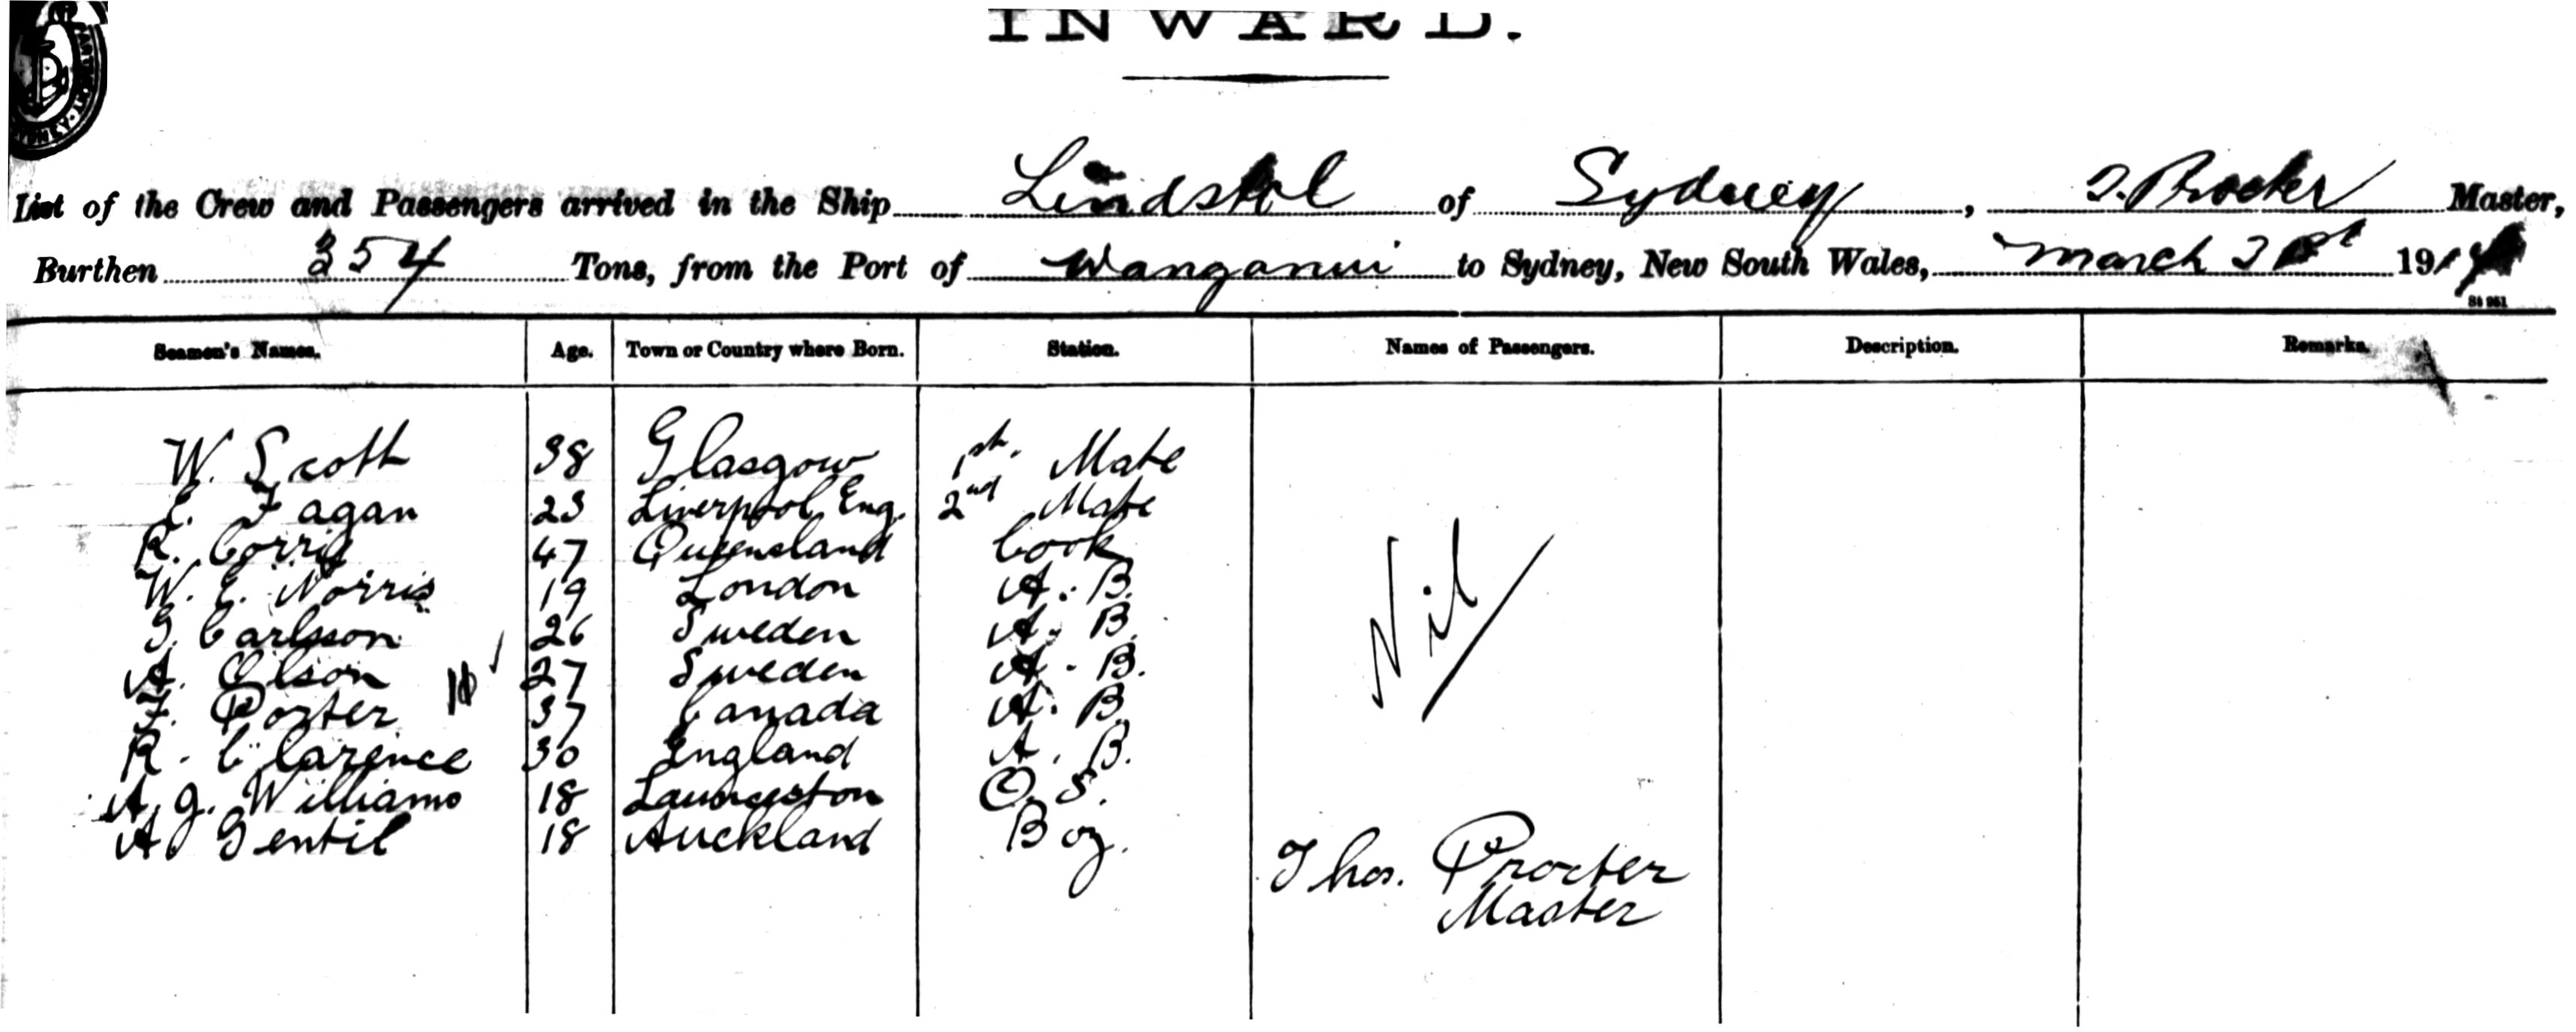 INWARD.
List of the Crew and Passengers arrived in the Ship Lindstol of Sydney, T. Procter Master,
Burthen 354 Tons, from the Port of Wanganui to Sydney, New South Wales, March 191
Seamen's Names. Age. Town or Country where Born. Station. Names of Passengers. Description. Remarks.
W. Scott 38 Glasgow 1st. Mate
Fagan 23 Liverpool Eng. 2nd Mate
R. Corrie 47 Queensland Cook
W. E. Norris 19 London A. B.
G. Carlsson 26 Sweden A. B.
A. Olson 27 Sweden A. B.
F. Porter 37 Canada A. B.
R. Clarence 30 England A. B.
A. J. Williams 18 Launceston O. S.
A. Gentil 18 Auckland Boy.
Nil
Thos. Procter
Master